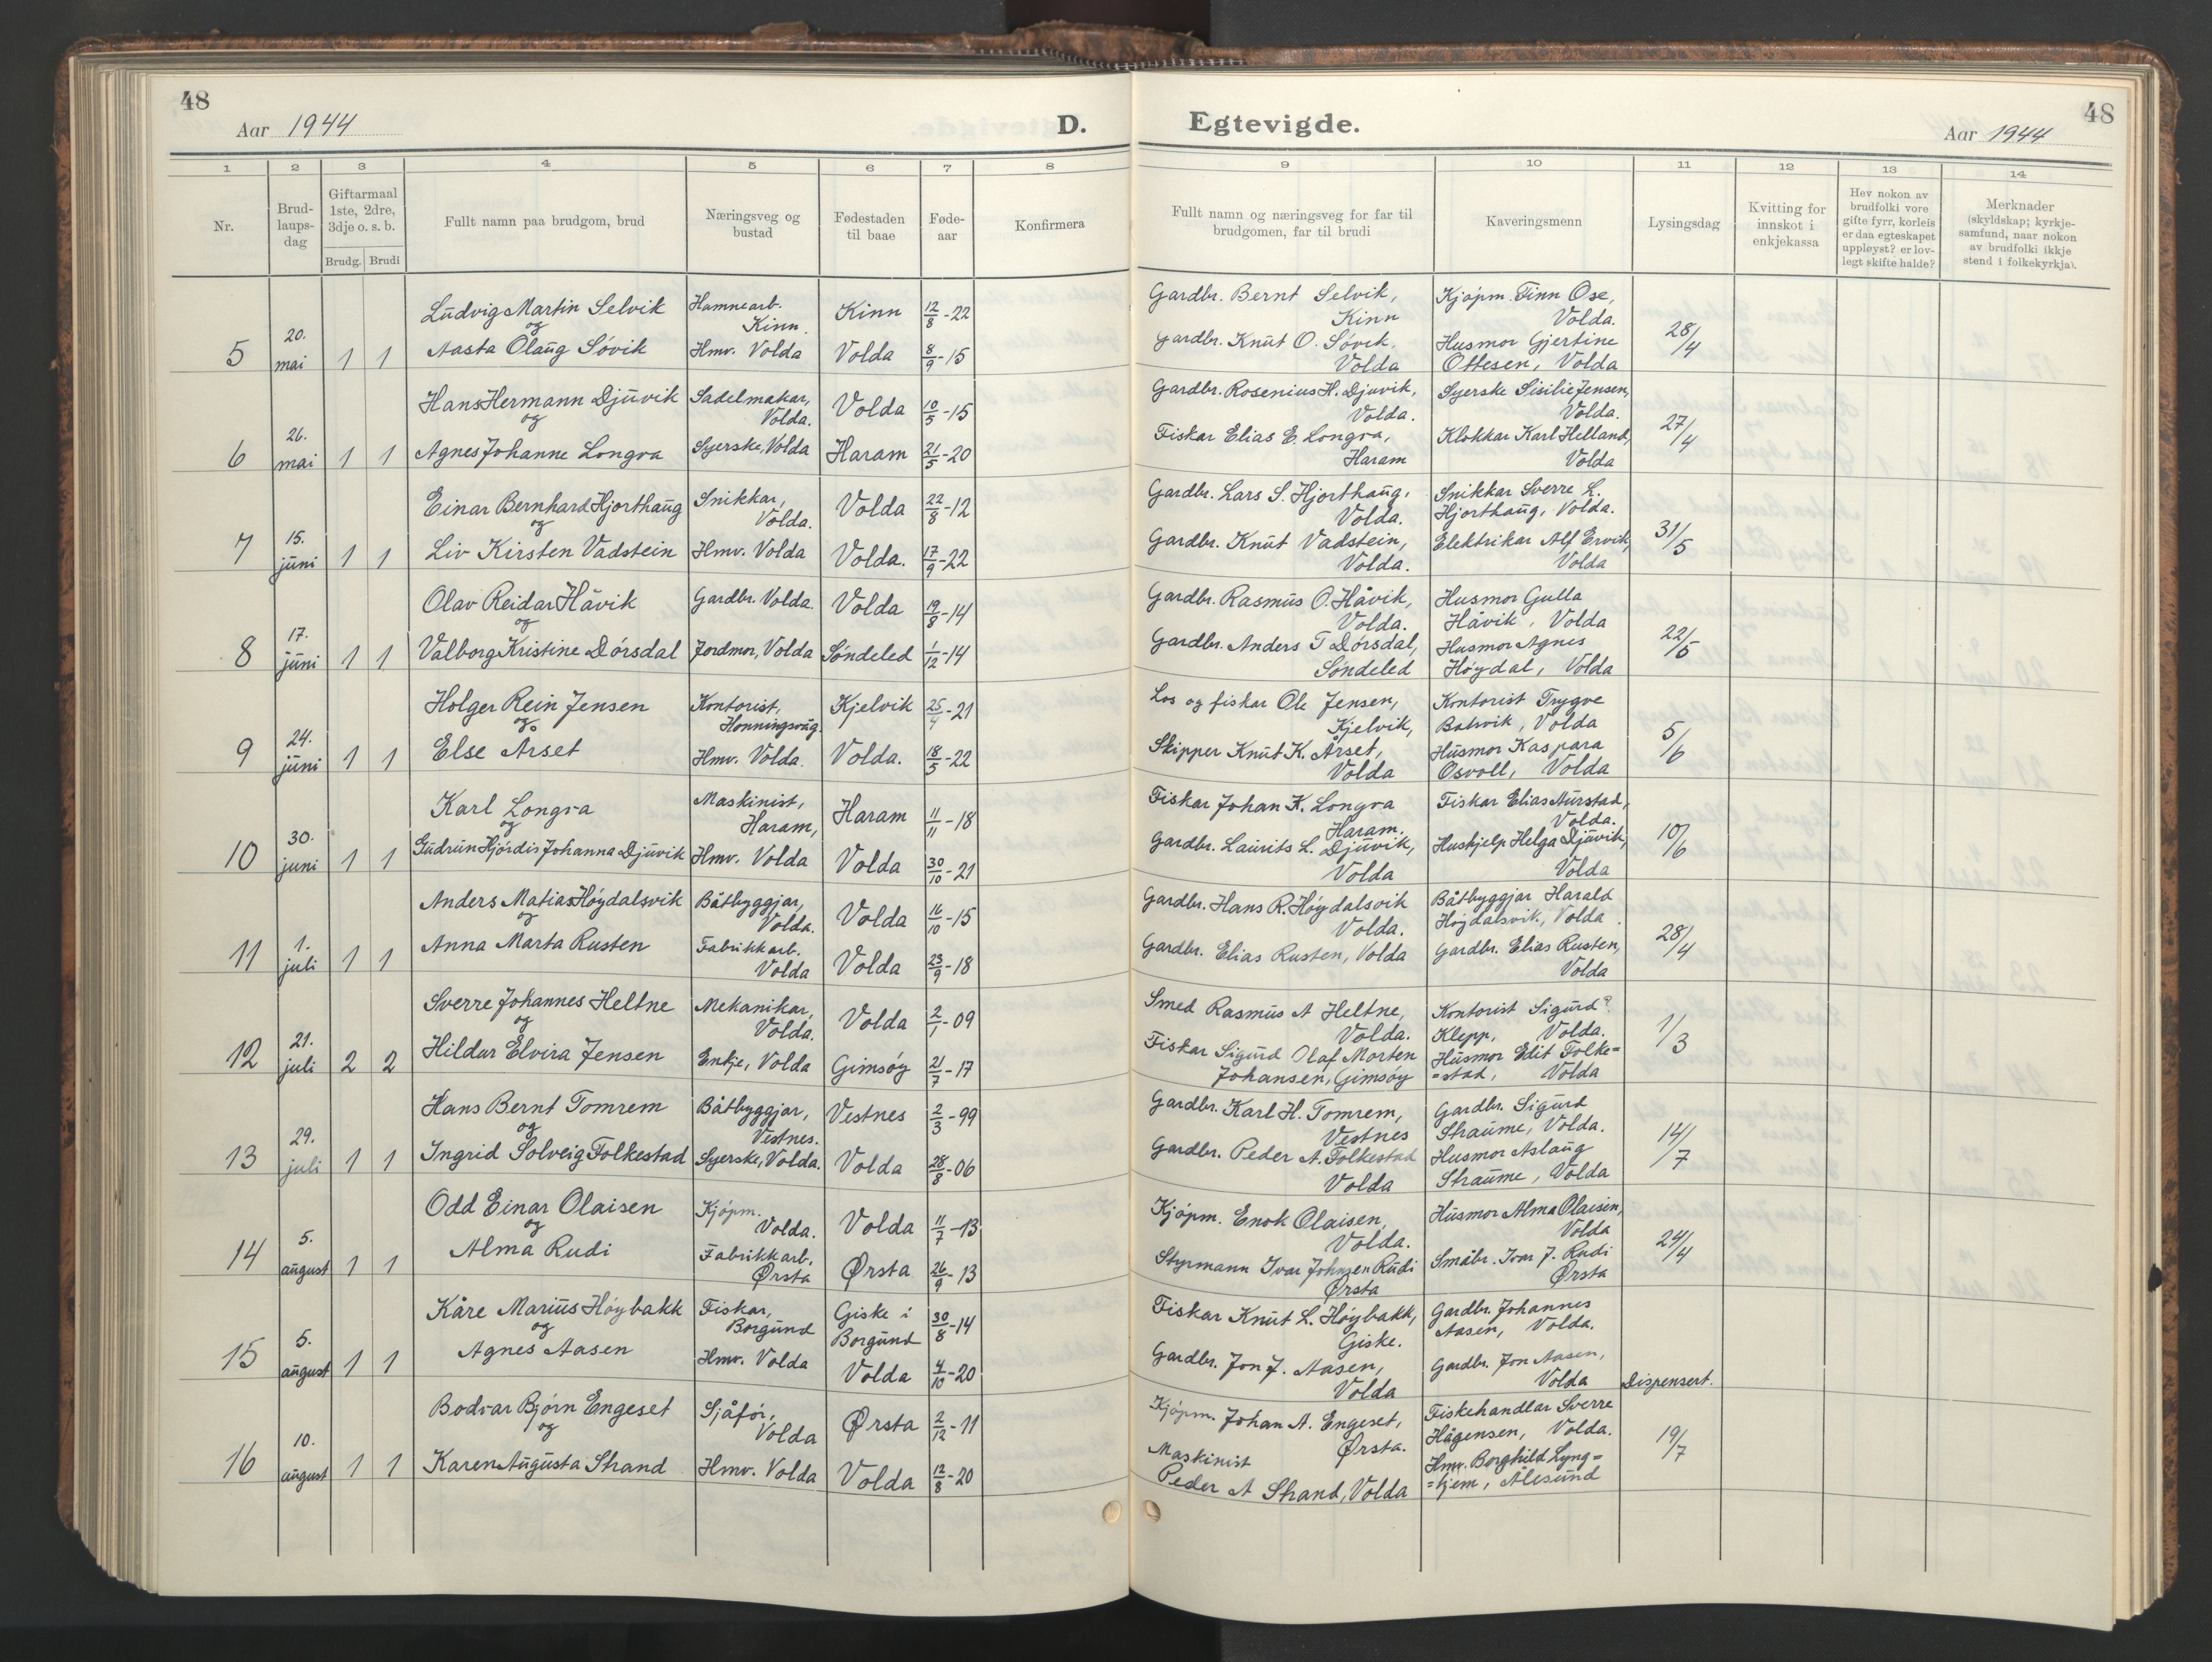 48
Aar 1944
D.
Egtevigde.
48
Aar 1944
1 2 3 4 5 6 7 8 9 10 11 12 13 14
Nr.
Brud-
laups-
dag
Giftarmaal
1ste, 2dre,
3dje o. s. b.
Brudg. Brudi
Fullt namn paa brudgom, brud
Næringsveg og
bustad
Fødestaden
til baae
Føde-
aar
Konfirmera
Fullt namn og næringsveg for far til
brudgomen, far til brudi
Kaveringsmenn
Lysingsdag
Kvitting for
innskot i
enkjekassa
Hev nokon av
brudfolki vore
gifte fyrr, korleis
er daa egteskapet
uppløyst? er lov-
legt skifte halde?
Merknader
(skyldskap; kyrkje-
samfund, naar nokon
av brudfolki ikkje
stend i folkekyrkja).
5
20.
mai
1 1
Ludvig Martin Selvik
og
Aasta Olaug Søvik
Hamnearb.
Kinn.
Hmv. Volda
Kinn
Volda
12/8-22
8/9-15
Gardbr. Bernt Selvik,
Kinn
Gardbr. Knut O. Søvik.
Volda
Kjøpm. Finn Ose,
Volda.
Husmor Gjertine
Ottesen, Volda
28/4
6
26.
mai
1 1
Hans Hermann Djuvik
og
Agnes Johanne Longva
Sadelmakar,
Volda.
Syerske, Volda
Volda
Haram
10/5-15
21/5-20
Gardbr. Rosenius H. Djuvik,
Volda.
Fiskar Elias E. Longva,
Haram
Syerske Sisilie Jensen,
Volda.
Klokkar Karl Helland,
Volda
27/4
7
15.
juni
1 1
Einar Bernhard Hjorthaug
og
Liv Kirsten Vadstein
Snikkar,
Volda.
Hmv. Volda
Volda
Volda.
22/8-12
17/9-22
Gardbr. Lars S. Hjorthaug.
Volda.
Gardbr. Knut Vadstein,
Volda.
Snikkar Sverre L.
Hjorthaug, Volda.
Elektrikar Alf Ervik,
Volda
31/5
8
17.
juni
1 1
Olav Reidar Håvik
og
Valborg Kristine Dørsdal
Gardbr. Volda.
Jordmor, Volda
Volda
Søndeled
19/8-14
1/12-14
Gardbr. Rasmus O. Håvik,
Volda.
Gardbr. Anders T Dørsdal,
Søndeled
Husmor Gulla
Håvik, Volda
Husmor Agnes
Høydal, Volda
22/5
9
24.
juni
1 1
Holger Rein Jensen
og
Else Årset
Kontorist,
Honningsvåg.
Hmv. Volda.
Kjelvik
Volda.
25/4-21
18/5-22
Los og fiskar Ole Jensen,
Kjelvik,
Skipper Knut K. Årset,
Volda
Kontorist Trygve
Botnvik, Volda
Husmor Kaspara
Osvoll, Volda
5/6
10
30.
juni
1 1
Karl Longva
og
Gudrun Hjørdis Johanna Djuvik
Maskinist,
Haram,
Hmv. Volda
Haram
Volda
11/11-18
30/10-21
Fiskar Johan K. Longva
Haram.
Gardbr. Laurits L. Djuvik,
Volda
Fiskar Elias Aurstad,
Volda.
Hushjelp Helga Djuvik,
Volda
10/6
11
1.
juli
1 1
Anders Matias Høydalsvik
og
Anna Marta Rusten
Båtbyggjar,
Volda.
Fabrikkarb.
Volda
Volda
Volda
16/10-15
23/9-18
Gardbr. Hans R. Høydalsvik
Volda.
Gardbr. Elias Rusten, Volda
Båtbyggjar Harald
Høydalsvik, Volda.
Gardbr. Elias Rusten,
Volda
28/4
12
21.
juli
2 2
Sverre Johannes Heltne
og
Hildur Elvira Jensen
Mekanikar,
Volda.
Enkje, Volda
Volda
Gimsøy
2/1-09
21/7-17
Smed Rasmus A Heltne,
Volda.
Fiskar Sigurd Olaf Morten
Johansen, Gimsøy
Kontorist Sigurd?
Klepp, Volda.
Husmor Edit Folke=
=stad, Volda
1/3
13
29.
juli
1 1
Hans Bernt Tomrem
og
Ingrid Solveig Folkestad
Båtbyggjar,
Vestnes.
Syerske, Volda.
Vestnes
Volda
2/3-99
28/8-06
Gardbr. Karl H. Tomrem,
Vestnes
Gardbr. Peder A. Folkestad
Volda
Gardbr. Sigurd
Straume, Volda.
Husmor Aslaug
Straume, Volda
14/7
14
5.
august
1 1
Odd Einar Olaisen
og
Alma Rudi
Kjøpm.
Volda.
Fabrikkarb,
Ørsta
Volda
Ørsta
11/7-13
26/9-13
Kjøpm. Enok Olaisen,
Volda.
Styrmann Ivar Johnsen Rudi
Ørsta
Husmor Alma Olaisen,
Volda
Småbr. Ivar J. Rudi
Ørsta
24/4
15
5.
august
1 1
Kåre Marius Høybakk
og
Agnes Aasen
Fiskar,
Borgund
Hmv. Volda
Giske i
Borgund
Volda
30/8-14
4/10-20
Fiskar Knut L. Høybakk,
Giske.
Gardbr. Jon J. Aasen,
Volda
Gardbr. Johannes
Aasen, Volda.
Gardbr. Jon Aasen,
Volda
Dispensert.
16
10.
august
1 1
Bodvar Bjørn Engeset
og
Karen Augusta Strand
Sjåfør,
Volda
Hmv. Volda
Ørsta
Volda
2/12-11
12/8-20
Kjøpm. Johan A. Engeset,
Ørsta.
Maskinist
Peder A Strand, Volda
Fiskehandlar Sverre
Hågensen, Volda.
Hmv. Borghild Lyng=
=hjem, Ålesund
19/7